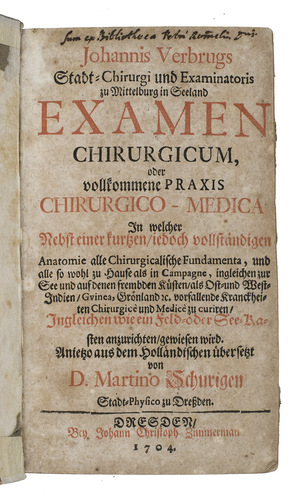 Sum ex Bibliotheca Petri
Johannis Verbrugs
Stadt-Chirurgi und Examinatoris
zu Mittelburg in Seeland
EXAMEN
CHIRURGICUM,
oder
vollkommene PRAXIS
CHIRURGICO-MEDICA
In welcher
Nebst einer kurtzen/iedoch vollständigen
Anatomie alle Chirurgicalische Fundamenta, und
alle so wohl zu Hause als in Campagne, ingleichen zur
See und auf denen frembden Küsten/als Ost-und West-
Indien/Gvinea, Grönland ꝛc. vorfallende Kranckhei-
ten Chirurgicè und Medicè zu curiren/
Ingleichen wie ein Feld-oder See-Ka-
sten anzurichten/gewiesen wird.
Anietzo aus dem Holländischen übersetzt
von
D. Martino Schurigen
Stadt-Physico zu Dreßden.
DRESDEN/
Bey Johann Christoph Zimmerman
1704.